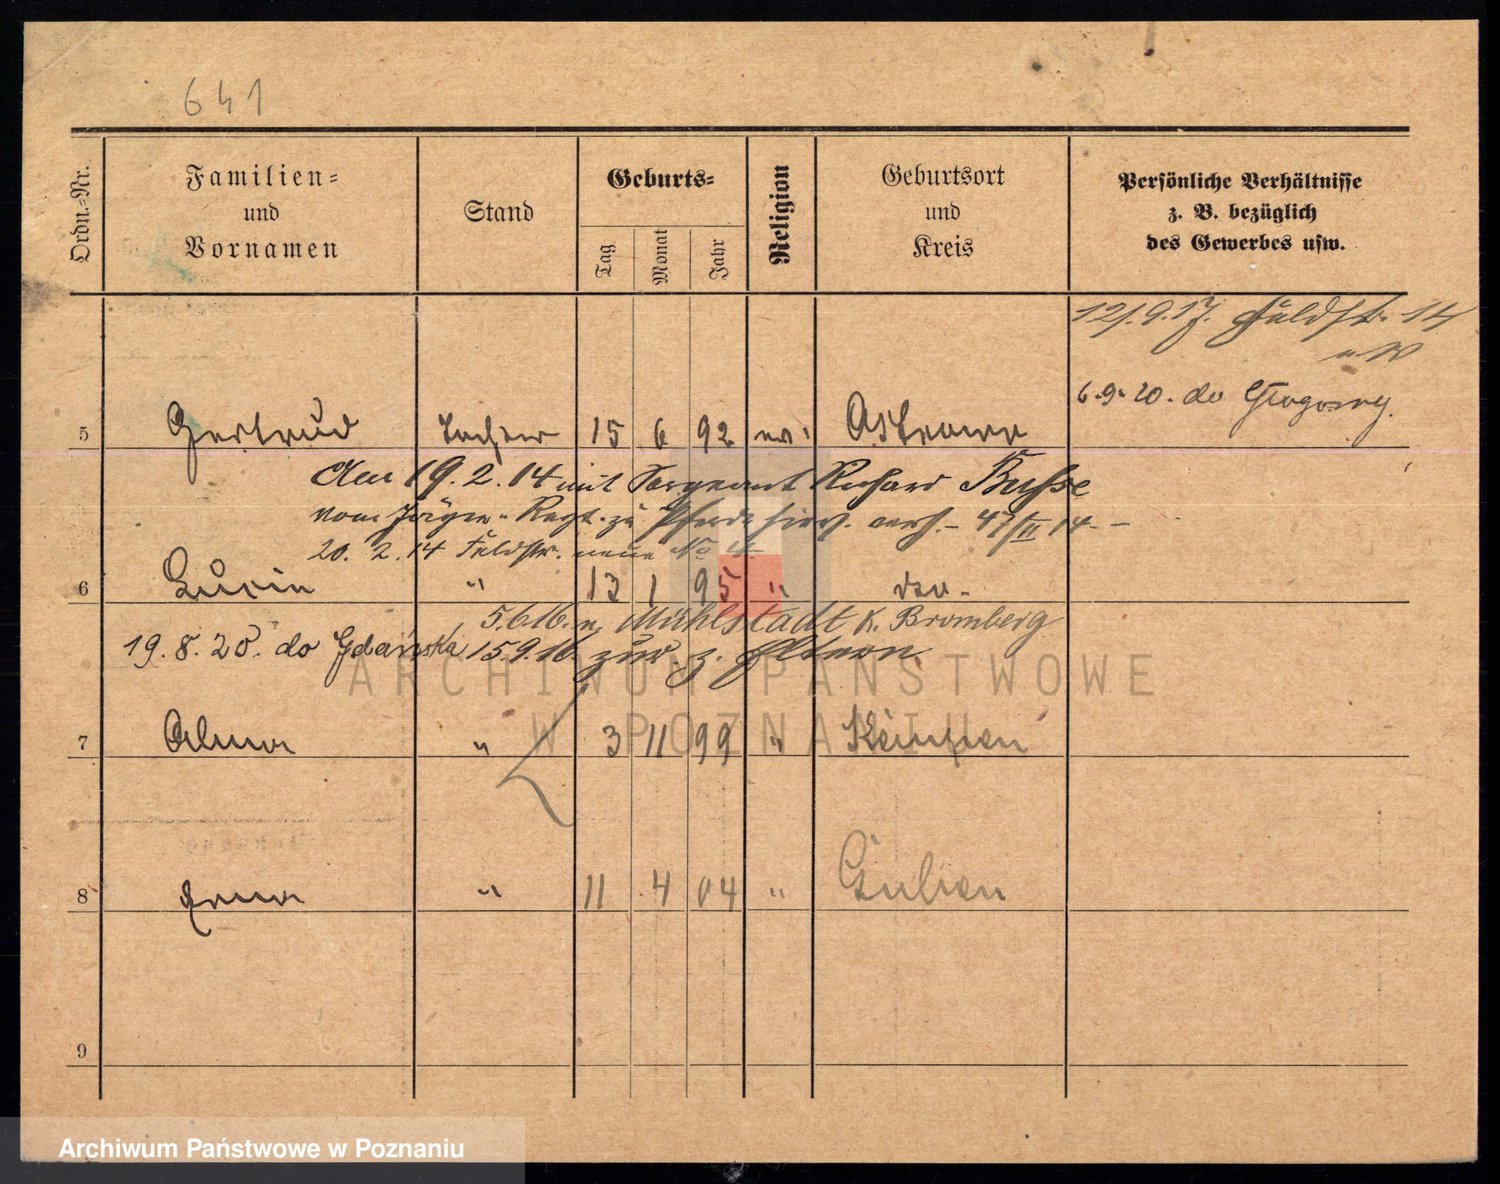 641
Ordn.-Nr.
Familien-
und
Vornamen
Stand
Geburts-
Tag
Monat
Jahr
Religion
Geburtsort
und
Kreis
Persönliche Verhältnisse
z. B. bezüglich
des Gewerbes usw.
12/.9.17. Feldstr. 14
6.9.20. do
5 Gertrud Tochter 15 6 92 ev. Ostrowo
Am 19.2.14 mit Sergeant Richard Busse
vom Jäger-Regt. zu Pferde hier verh. - 47/II 14 -
20.2.14 Feldstr. neue No 4
6 Lucie " 13 1 95 " do -
5.6.16. n. Mühlstadt K. Bromberg
19.8.20. do Gdańska 15.9.16. zur. z. Eltern
7 Alma " 3 11 99 " Kempen
8 Erna " 11 4 04 "
9
ARCHIWUM PAŃSTWOWE
W POZNANIU
Archiwum Państwowe w Poznaniu